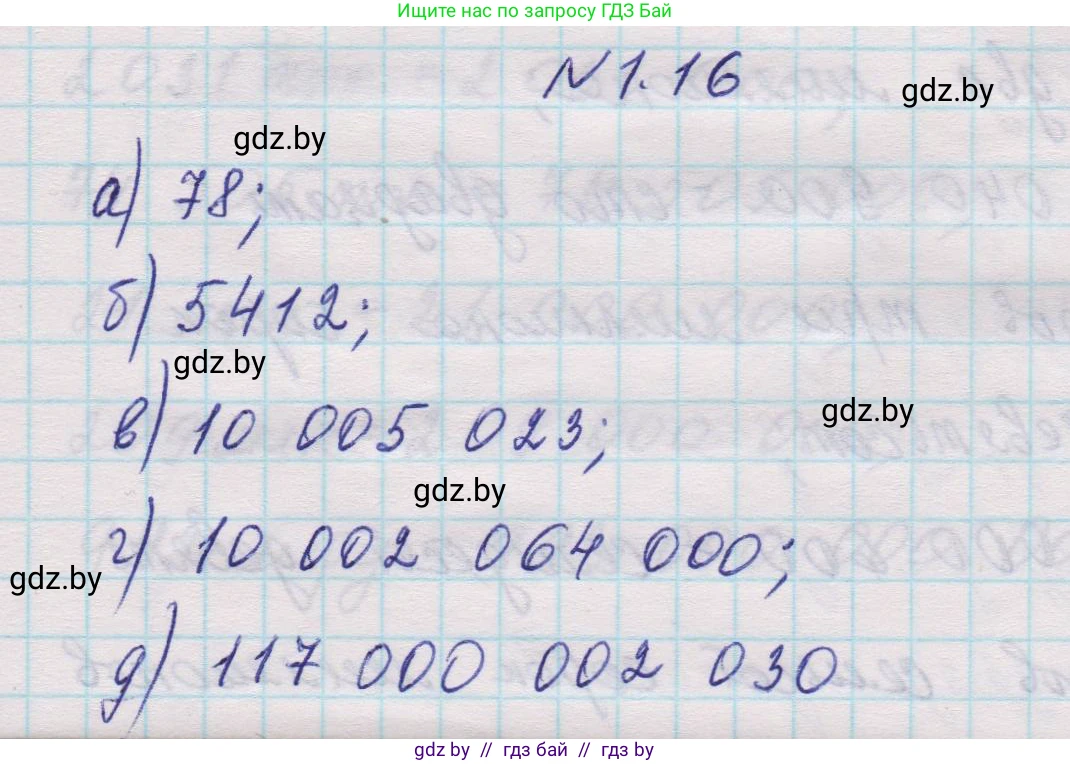 Ищите нас по запросу ГДЗ Бай
N 1.16
gdz.by
gdz.by
а) 78;
б) 5412;
gdz.by
в) 10 005 023;
gdz.by
gdz.by
г) 10 002 064 000;
gdz.by
д) 117 000 002 030
gdz by // гдз бай // гдз by